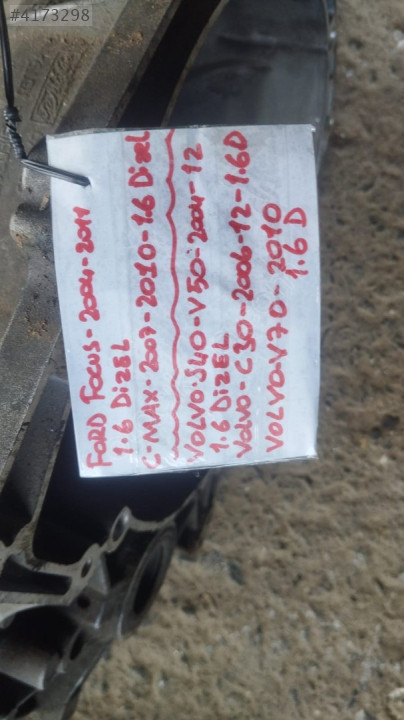 #4173298
FORD FOCUS-2004-2011
1.6 DİZEL
C-MAX-2007-2010-1.6 Dizel
VOLVO-S40-V50-2004-12
1.6 DİZEL
VOLVO-C30-2006-12-1.6D
VOLVO-V70-2010
1.6 D